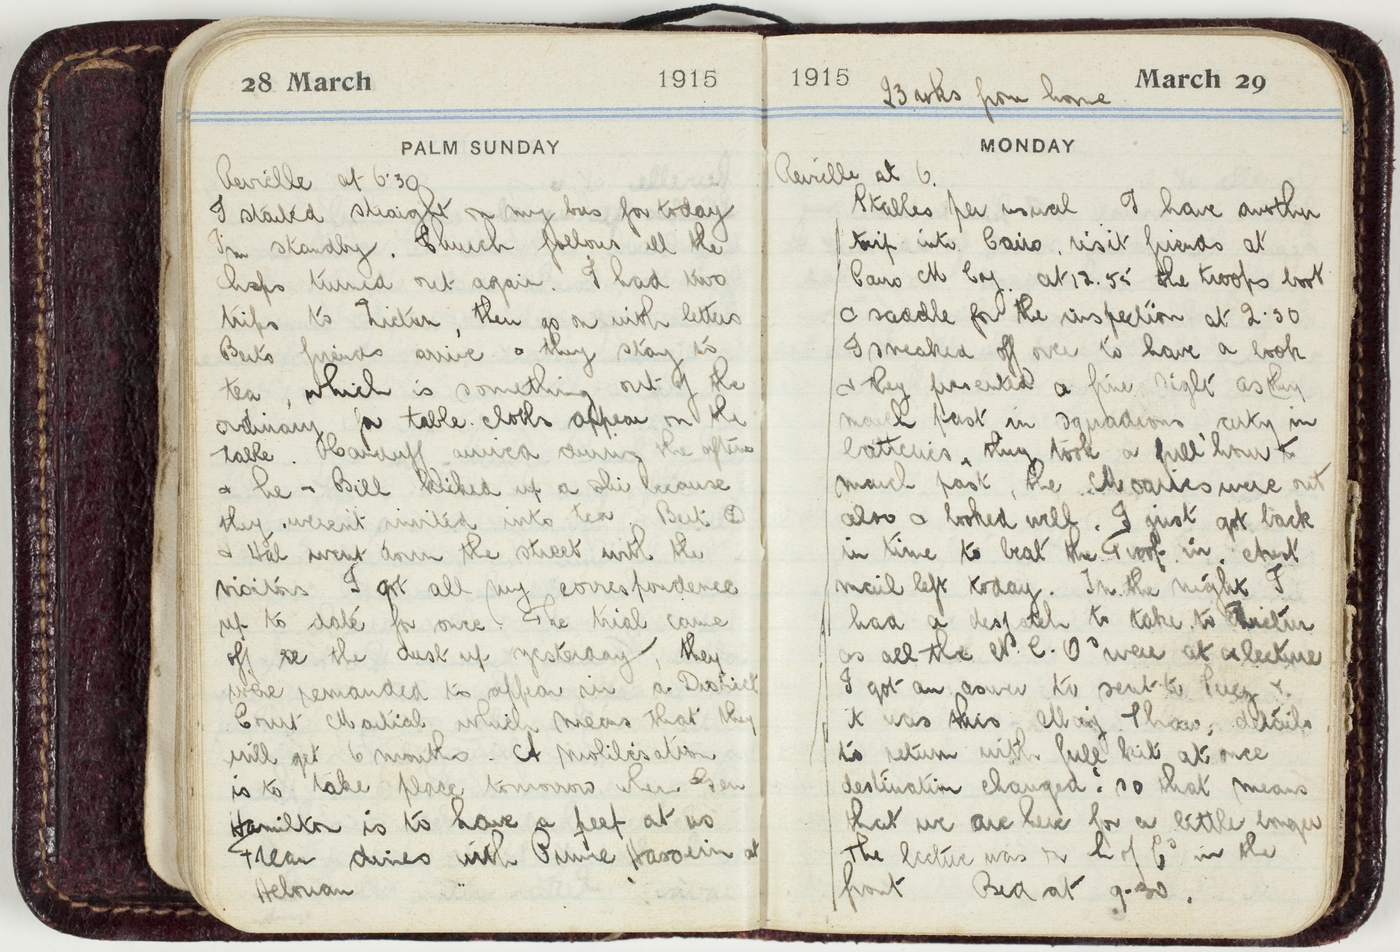 28 March 1915
PALM SUNDAY
Reveille at 6.30
I started straight on my bus for today
I'm standby. Church follows all the
chaps turned out again. I had two
trips to Zieton, then go on with letters
Berts friends arrive & they stay to
tea, which is something out of the
ordinary & a table cloths appear on the
table. Handuff arrived during the aftern
& he & Bill kicked up a shi because
they wern't invited into tea Bert
& Hal went down the street with the
visitors I got all my correspondence
up to date for once. The trial came
off re the dust up yesterday, they
were remanded to appear in a District
Court Martial which means that they
will get 6 months. A mobilisation
is to take place tomorrow when Gen
Hamilton is to have a peep at us
dines with Prince at
Helouan
1915 March 29
23 wks from home
MONDAY
Reveille at 6.
Stables per usual I have another
trip into Cairo, visit friends at
Cairo M Coy. at 12.55 the troops boot
& saddle for the inspection at 2.30
I sneaked off over to have a look
& they presented a fine sight as they
march past in squadrons in
batteries, they took a full hour to
march past, the Maories were out
also & looked well. I just got back
in time to beat the Troop in.
mail left today. In the night I
had a despatch to take to Zieton
as all the N.C.Os were at a lecture
I got an aswer to sent to Suez &
it was this details
to return with full kit at once
destination changed: so that means
that we are here for a little longer
The lecture was on in the
front Bed at 9.30.